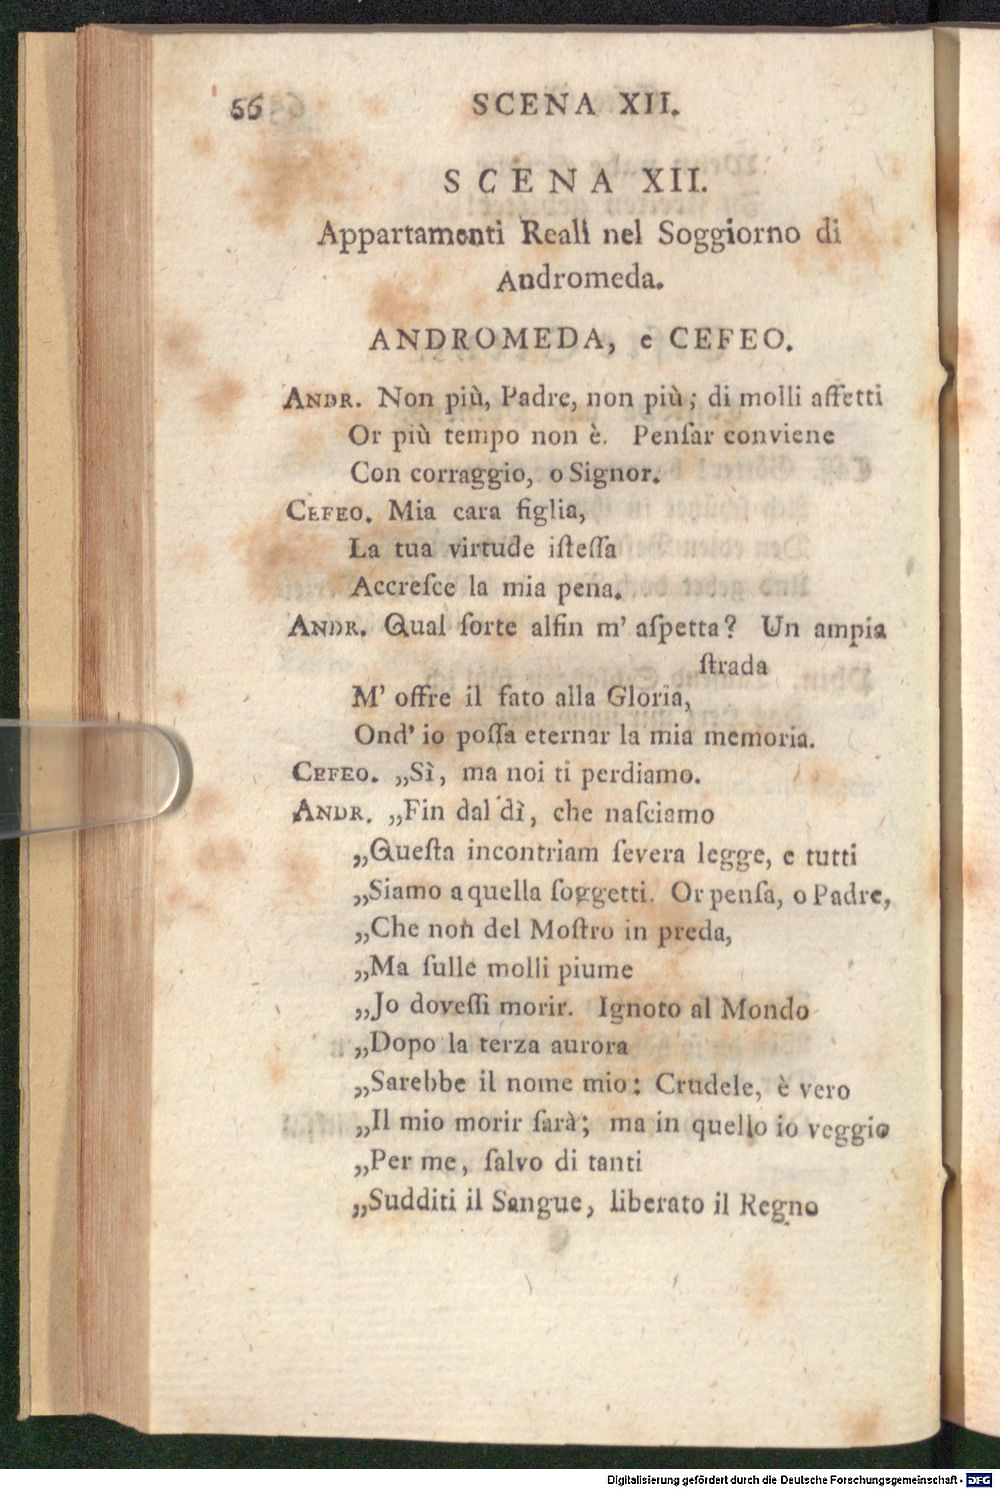 56 SCENA XII.
SCENA XII.
Appartamenti Reali nel Soggiorno di
Andromeda.
ANDROMEDA, e CEFEO.
ANDR. Non più, Padre, non più; di molli affetti
Or più tempo non è. Penſar conviene
Con corraggio, o Signor.
CEFEO. Mia cara figlia,
La tua virtude iſteſſa
Accreſce la mia pena.
ANDR. Qual ſorte alfin m' aſpetta? Un ampia
ſtrada
M' offre il fato alla Gloria,
Ond' io poſſa eternar la mia memoria.
CEFEO. „Sì, ma noi ti perdiamo.
ANDR. „Fin dal dì, che naſciamo
„Queſta incontriam ſevera legge, e tutti
„Siamo a quella ſoggetti. Or penſa, o Padre,
„Che non del Moſtro in preda,
„Ma ſulle molli piume
„Jo doveſſi morir. Ignoto al Mondo
„Dopo la terza aurora
„Sarebbe il nome mio: Crudele, è vero
„Il mio morir ſarà; ma in quello io veggio
„Per me, ſalvo di tanti
„Sudditi il Sangue, liberato il Regno
Digitalisierung gefördert durch die Deutsche Forschungsgemeinschaft - DFG